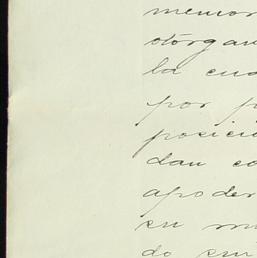 memor
otorgan
la cua
por p
posicio
dan co
apoder
en mi
do en